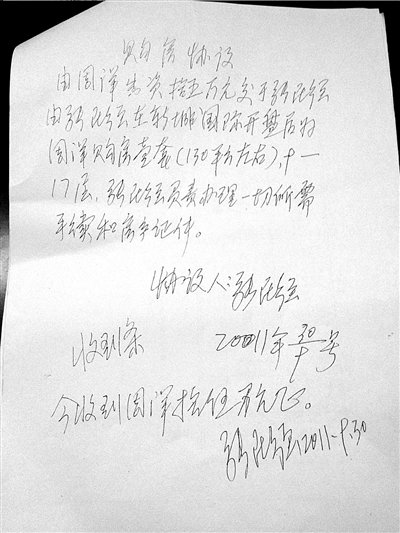 购房协议
由周洋先资拾五万元交于张
由张在新城国际开盘后为
周洋购房壹套(130平方左右),十一
17层,张负责办理一切所需
手续和房产证件。
协议人:张
收到条 20011年30号
今收到周洋拾伍万元正。
张 2011.9.30